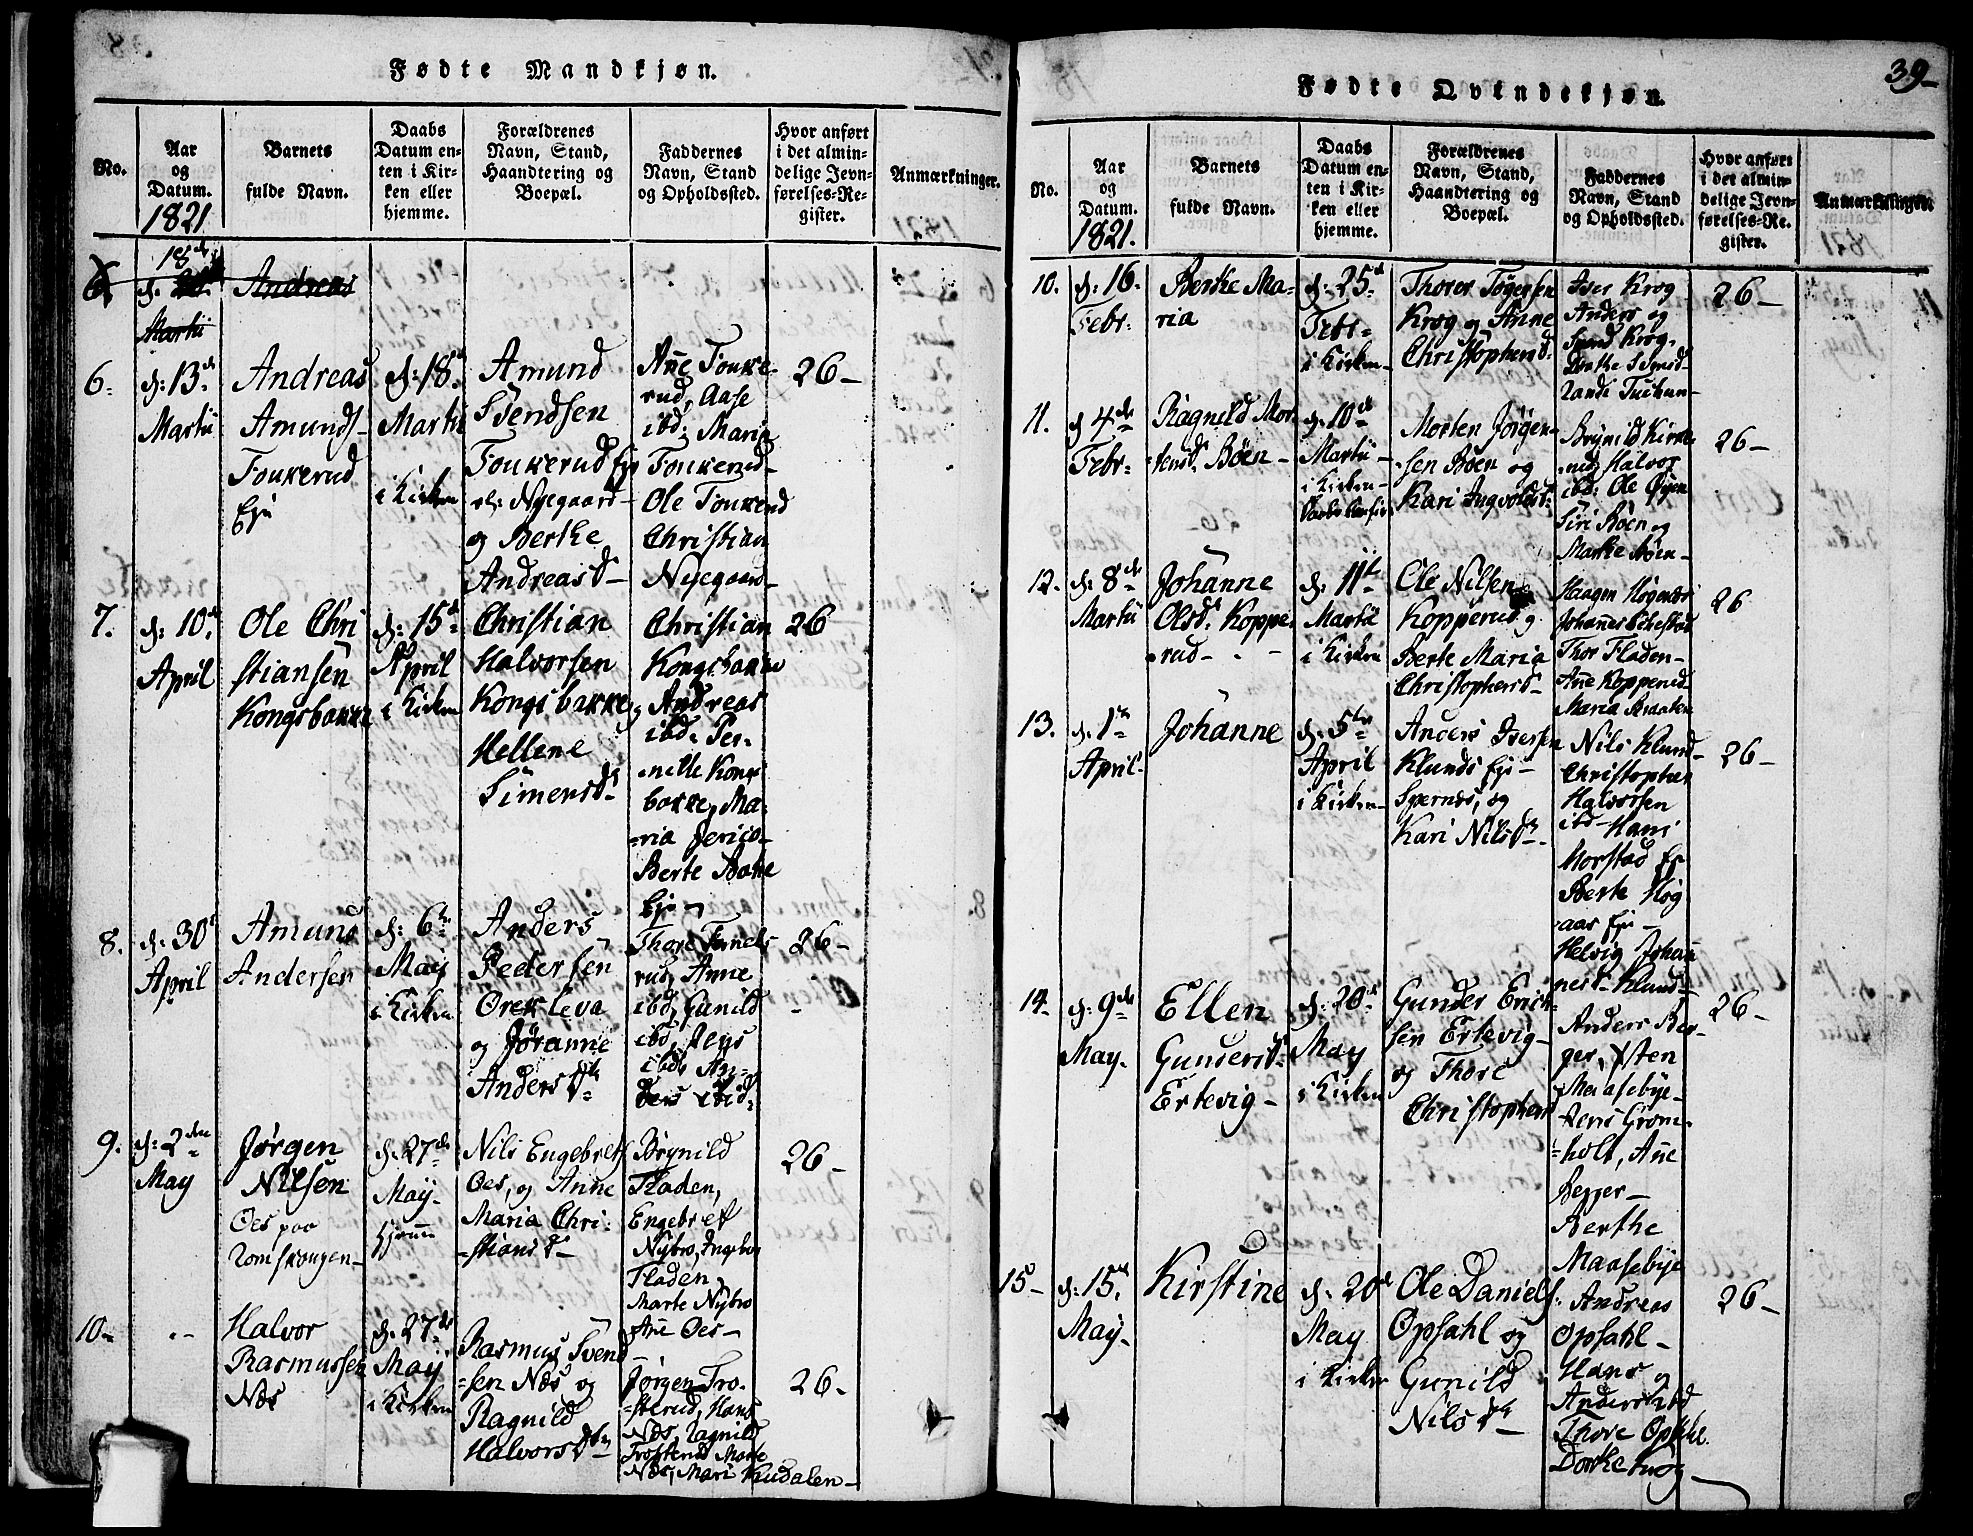 Fødte Mandkjøn.
No.
Aar
og
Datum.
1821
Barnets
fulde Navn.
Daabs
Datum en-
ten i Kir-
ken eller
hjemme.
Forældrenes
Navn, Stand,
Haandtering og
Boepæl.
Faddernes
Navn, Stand
og Opholdssted.
Hvor anført
i det almin-
delige Jevn-
førelses-Re-
gister.
Anmærkninger.
18de
6.
Andreas
Martii
6.
d: 13de
Martii
Andreas
Amunds-
Foukerud
Eje
d: 18de
Martii
i Kirken
Amund
Svendsen
Foukerud Eje
Nyegaard-
og Berthe
Andreasd-
Ane Fouke-
rud, Aase
ibd; Maria
Foukerud-
Ole Foukerud
Christian
Nyegaard-
26-
7.
d: 10de
April
Ole Chri
stiansen
Kongsbakke
d: 15de
April
i Kirken
Christian
Halvorsen
Kongsbakke,
Hellene
Simensd-
Christian
Kongsbakke
Andreas
ibd. Per-
nille Kongs
bakke, Ma-
ria Jerico-
Berte Bakke
Eje-
26
8.
d: 30te
April
Amund
Andersen
d: 6te
May
i Kirken
Anders
Pedersen
Orekleva
og Jøranne
Andersdtr
Thore
rud, Anne
ibd, Gunild
ibd, Jens
ibd, An-
ders ibid.
26-
9.
d: 2den
May
Jørgen
Nilsen
Oes paa
Romskougen-
d. 27de
May-
hjemme
Nils Engebrets
Oes, og Anne
Maria Chri-
-stiansd-
Brynild
Fladen,
Engebret
Nybro, Ingebor
Fladen
Marte Nybro
Ane Oes-
26-
10-
Halvor
Rasmussen
Næs
d. 27de
May
i Kirken
Rasmus Svend
-sen Næs og
Ragnild
Halvorsdtr
Jørgen Tro-
-sterud, Hans
Næs, Ragnild
Trosterud Marte
Næs, Mari Kudalen-
26-
39-
Fødte Qvindekjøn.
No.
Aar
og
Datum.
1821.
Barnets
fulde Navn.
Daabs
Datum en-
ten i Kir-
ken eller
hjemme.
Forældrenes
Navn, Stand,
Haandtering og
Boepæl.
Faddernes
Navn, Stand
og Opholdssted.
Hvor anført
i det almin-
delige Jevn-
førelses-Re-
gister.
Anmærkninger.
10.
d: 16.
Febr:
Berthe Ma-
ria
d: 25de
Febr-
i Kirken-
Thorer Tøgersen
Krog og Anne
Christophersd.
Iver Krog
Anders og
Svend Krog.
26-
11.
d 4de
Febr-
Ragnild Mor-
tensd. Bøen-
d. 10de
Martii-
i Kirken-
Morten Jørgen-
-sen Bøen og
Kari Ingvoldsd.
Brynild
Halvor
ibd: Ole
Siri Bøen og
Marthe Bøen-
26-
12.
d: 8de
Martii
Johanne
Olsd. Koppe-
rud-
d: 11te
Martii
i Kirken
Ole Nilsen
Kopperud og
Berte Maria
Christophersd-
Haagen
Johannes
Thor Fladen-
Ane Kopperud
Maria Braaten
26
13.
d. 1te
April-
Johanne
d. 5te
April
i Kirken-
Anders Iversen
Klunds Eje-
og
Kari Nilsd-
Nils Klund-
Christopher
Halvorsen
ibd- Hans
Morstad Ej
Berte Høg
aas Eje-
Helvig Johan
nesd. Klund-
26-
14-
d. 9de
May-
Ellen
Gundersd-
Ertevig-
d: 20de
May
i Kirken
Gunder Erich-
sen Ertevig-
og Thore
Christophersd
Anders Ber-
ger, Østen
Maasebye-
Jens Grøm-
-holt, Ane
Berger-
Berthe
Maasebye
26-
15-
d: 15de
May-
Kirstine
d. 20de
May
i Kirken
Ole Daniels
Opsahl og
Gunild
Nilsdtr-
Andreas
Opsahl-
Hans og
Anders ibd
Thore Opsahl.
Dorthe Krog-
26-